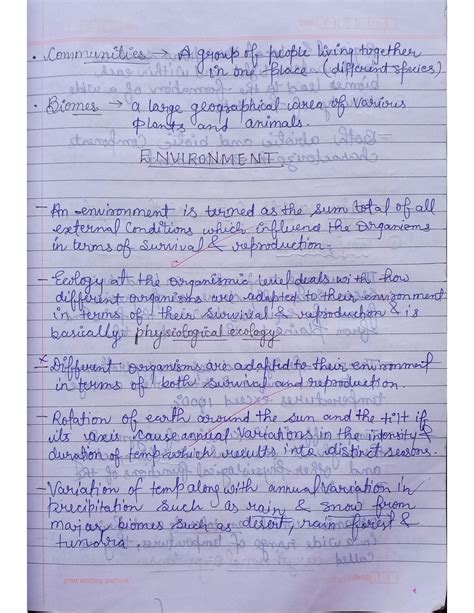 • Communities → A group of people living together
in one place. (different species)
• Biomes → a large geographical area of various
plants and animals.
ENVIRONMENT
- An environment is termed as the sum total of all
external conditions which influend the Organisms
in terms of survival & reproduction.
- Ecology at the organismic level deals with how
different organisms are adapted to their environment
in terms of their survival & reproduction & is
basically physiological ecology
* Different organisms are adapted to their environment
in terms of both survival and reproduction.
- Rotation of earth around the sun and the tilt if
its axis cause annual variations in the intensity &
duration of temp which results into distinct seasons.
- Variation of temp along with annual variation in
precipitation such as rain & snow from
major biomes such as desert, rain forest &
tundra.